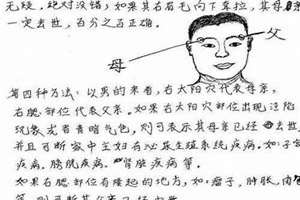 无统。绝对没错;如果其右眉毛向下牵拉,其母亲
一定去世。百分之百正确。
父
母
第四种方法:以男的来看,右太阳穴代表母亲,
右腮部位代表父亲。如果右太阳穴部位出现凹陷
现象或者青暗气色,则可表示其母亲已经去世,
并且可断家中主妇有泌尿生殖系统疾病。如:子宫
疾病。膀胱疾病。肾脏疾病等。
如果右腮部位有隆起的地方,如:瘤子,肿胀,肉